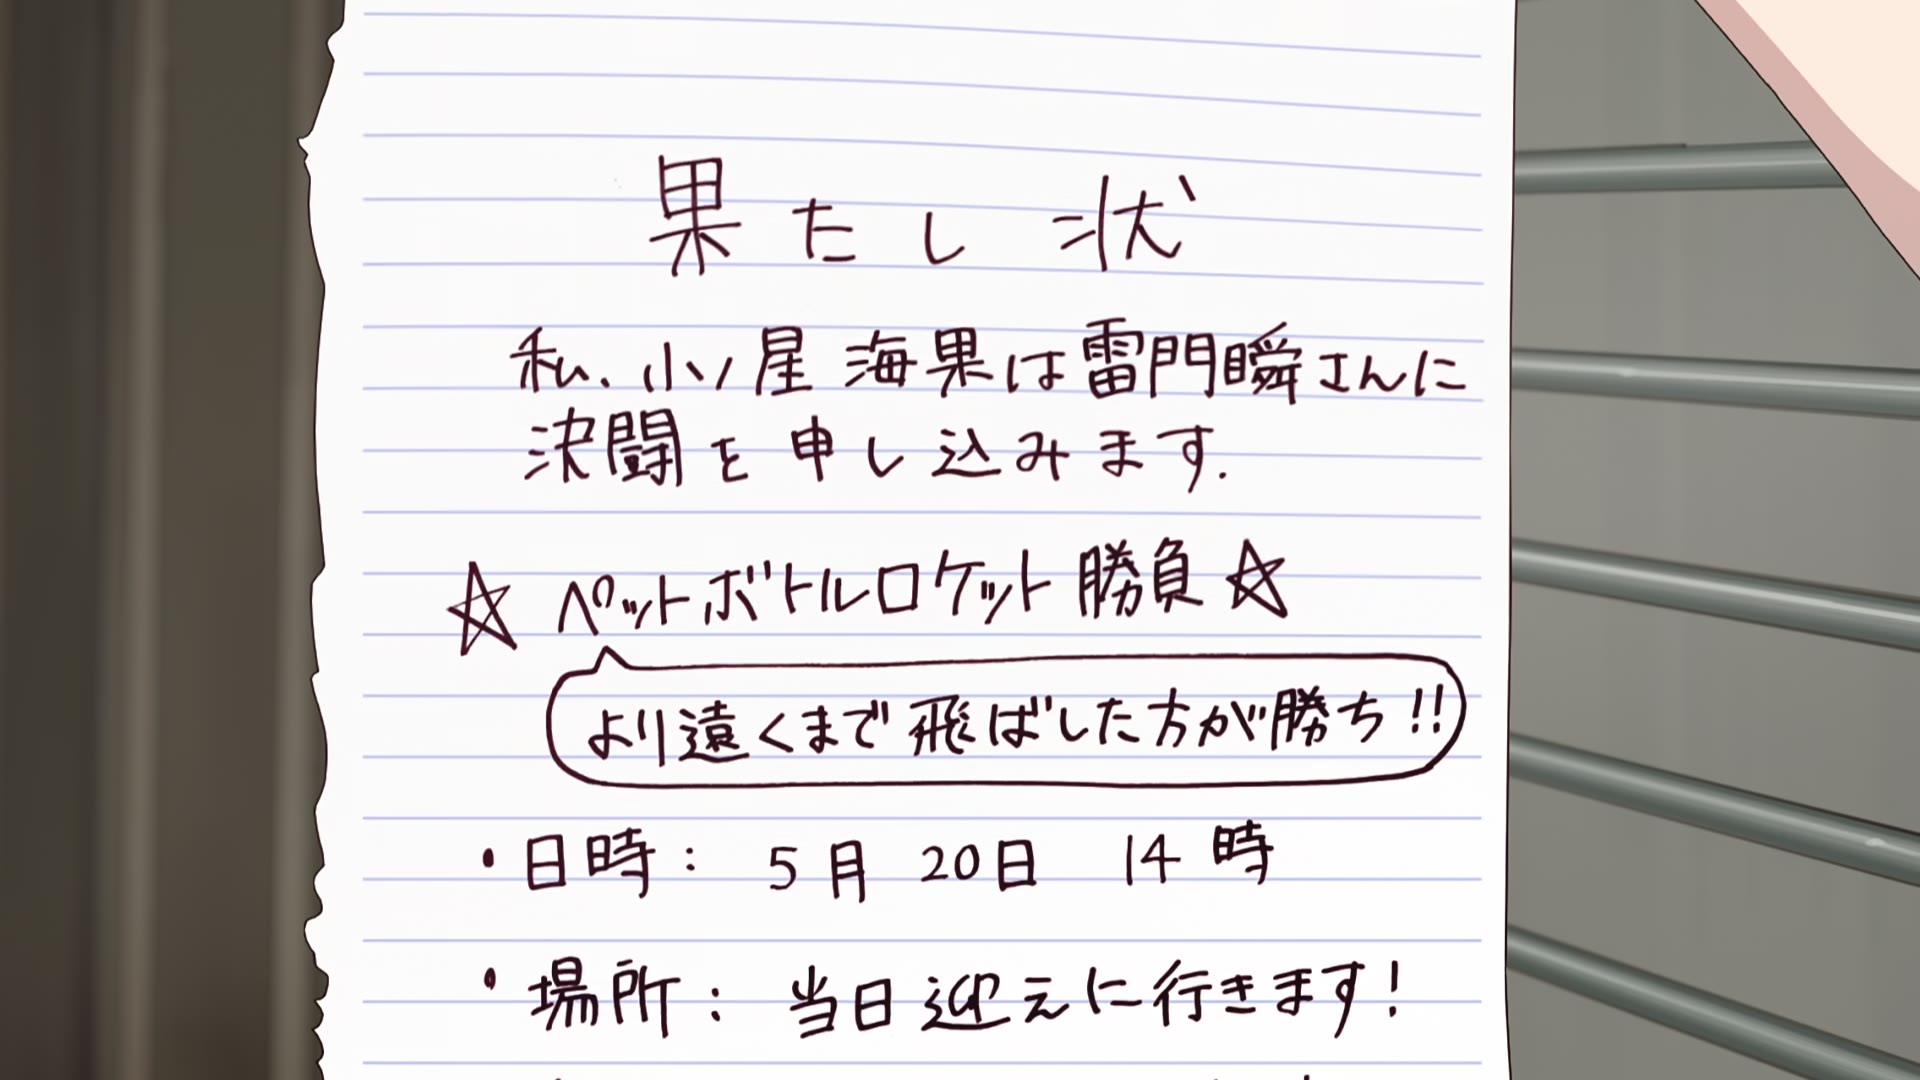 果たし状
私、小ノ星海果は雷門瞬さんに
決闘を申し込みます.
☆ペットボトルロケット勝負☆
より遠くまで飛ばした方が勝ち!!
・日時: 5月 20日 14時
・場所: 当日迎えに行きます!